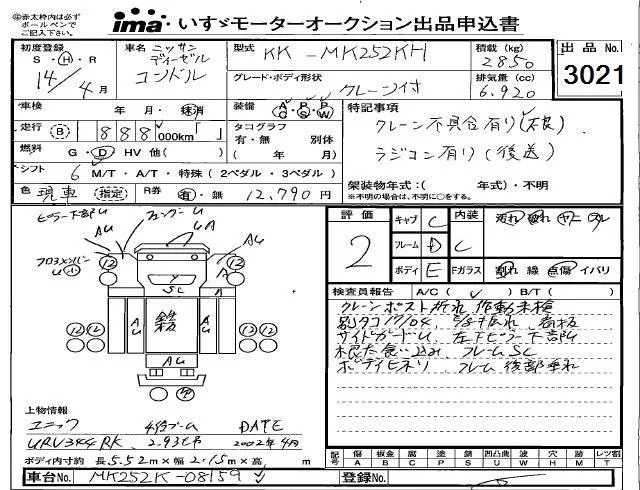 ◎赤太枠内は必ず
ボールペンで
ご記入下さい。
ima いすゞモーターオークション出品申込書
初度登録 S・H・R 14年 4月
車名 ニッサンディーゼル コンドル
型式 KK-MK252KH
積載(kg) 2850
出品No. 3021
グレード・ボディ形状 クレーン付
排気量(cc) 6,920
車検 年 月・抹消
装備 A/C P/S P/W
特記事項
クレーン不具合有り(不良)
ラジコン有り(後送)
走行 B 888,000km
タコグラフ 有・無 別体
( 年 月)
燃料 G・D HV 他( )
シフト 6 M/T・A/T・特殊(2ペダル・3ペダル)
架装物年式:( 年式)・不明
※不明の場合は、不明に○をする。
色 現車 (指定) R券 有・無 12,790円
ピラー下部U コーナーU
AU UA AU
フロントメンバーU小
12 12
SC
AU 錆板 AU
12 12 12
AU
評価 2
キャブ C 内装 C 汚れ 破れ ヤニ スレ
フレーム D
ボディ E Fガラス 割れ 線 点傷 イバリ
検査員報告 A/C(✓) B/T( )
クレーンポスト折れ 作動未検
別タコ17/04
サイドガードU 左下ピラー下部U
フレームSC
ボディヒネリ フレーム後部垂れ
上物情報
ユニック 4段ブーム DATE
URV344RK 2.93t吊 2002年4月
ボディ内寸約 長5.52m×幅2.15m×高 m
記号 傷 A 板金 B 腐 C 塗 P 錆 S 凹凸曲 U 波 W 穴 H 跡 M レツ割 T
車台No. MK252K-08159
登録No.